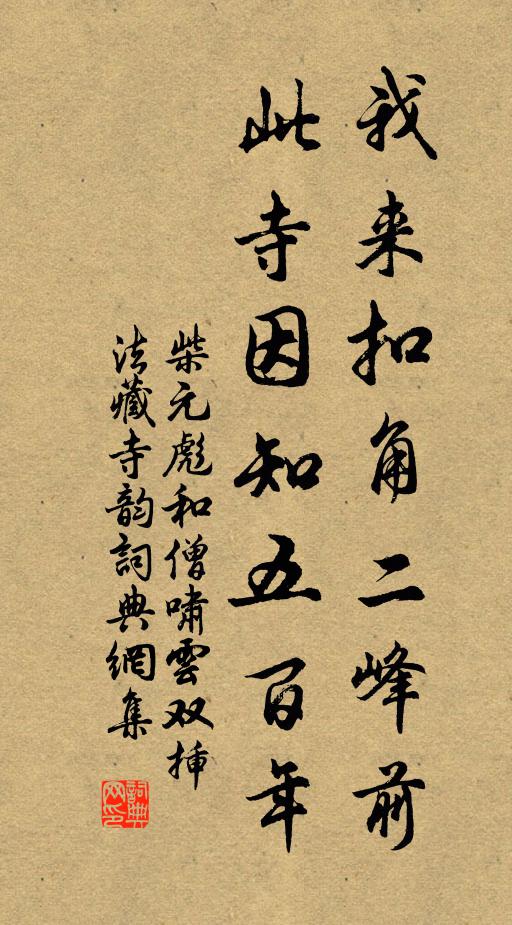 我来扣角二峰前
此寺因知五百年
柴元彪和僧啸雲双插
法藏寺韵詞典網集
詞典网印